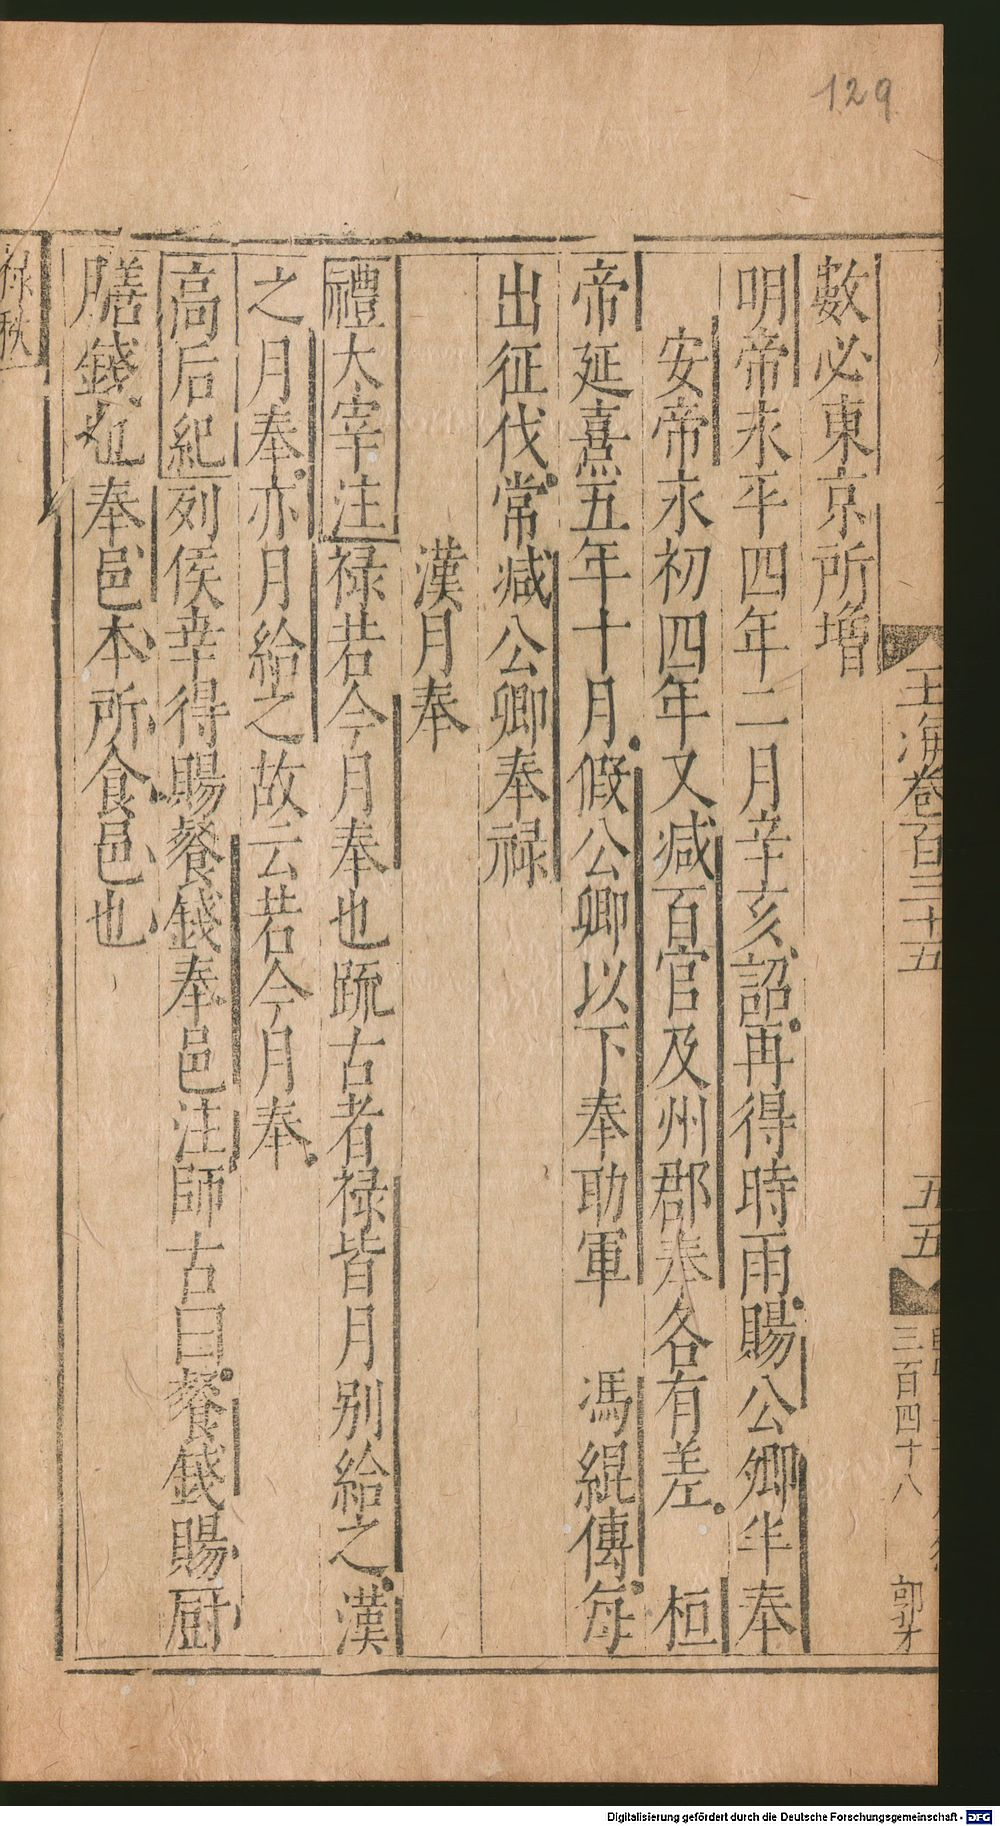 129
玉海卷百三十五
五五
三百四十八
數必東京所增
明帝永平四年二月辛亥詔再得時雨賜公卿半奉
安帝永初四年又减百官及州郡奉各有差 桓
帝延熹五年十月假公卿以下奉助軍 馮緄傳每
出征伐常减公卿奉祿
漢月奉
禮大宰注祿若今月奉也䟽古者祿皆月别給之漢
之月奉亦月給之故云若今月奉
高后紀列侯幸得賜餐錢奉邑注師古曰餐錢賜厨
膳錢也奉邑本所食邑也
祿秩
Digitalisierung gefördert durch die Deutsche Forschungsgemeinschaft - DFG